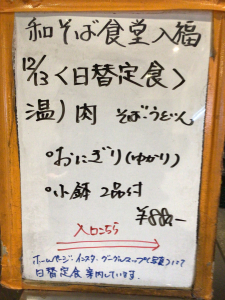 和そば食堂入福
12/13<日替定食>
温)肉 そば・うどん
・おにぎり(ゆかり)
・小鉢 2品付
¥880-
入口こちら
ホームページ・インスタ・グーグルマップ(写真)にて
日替定食 案内しています。